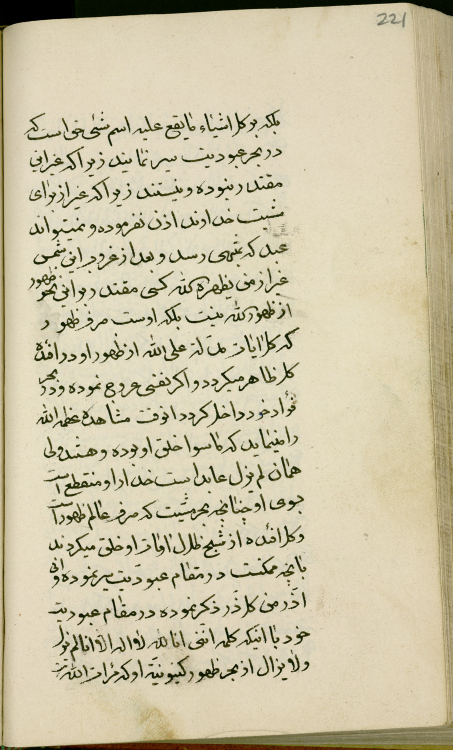 221
بلکه بر کل اشیاء ما یقع علیه اسم شئی حق است که
در بحر عبودیت سیر نمایند زیرا که غیر این
مقتدر نبوده و نیستند زیرا که غیر از برای
مشیت خداوند اذن نفرموده و نمیتواند
عبد که بمنتهی رسد و بعد از غروب این شمس
غیر از من یظهره الله کسی مقتدر بر این نحو ظهور
از ظهور الله نیست بلکه اوست صرف ظهور
که کل ایات مدله علی الله از ظهور او در افئده
کل ظاهر میگردد و اگر نفسی عروج نموده و در بحر
فؤاد خود داخل گردد انوقت مشاهده عظمة الله
را مینماید که ماسوا خلق او بوده و هستند ولی
همان لم یزل عابد است خدا را و منقطع است
بسوی او چنانچه بحر مشیت که صرف عالم ظهور است
و کل افئده از شبح ظلال اوفاق او خلق میگردند
بانچه ممکنست در مقام عبودیت سیر نموده و انی
اذر من کل ذر ذکر نموده در مقام عبودیت
خود با انیکه کلمه اننی انا لله لا اله الا انا لم یزل
و لا یزال از بحر ظهور کینونیة او که مرات الله است